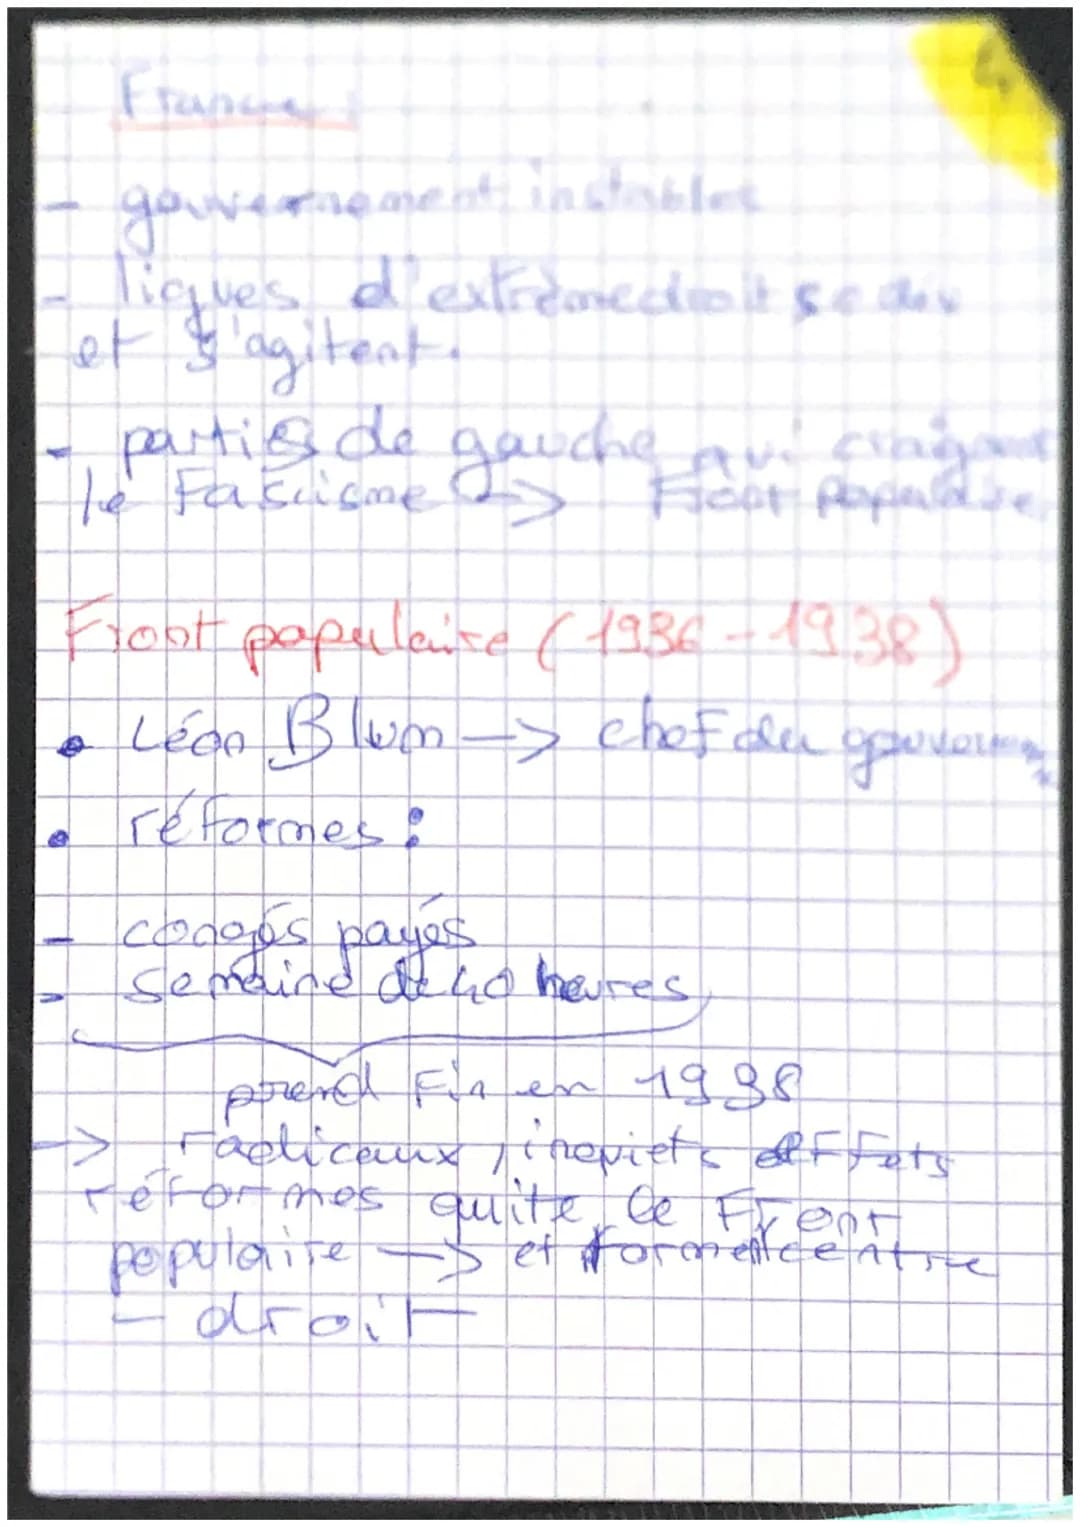 France :
- gouvernement instables
- ligues d'extrèmedroit se dev
et s'agitent.
- partis de gauche qui craignant
le Fascisme -> Front Populaire
Front populaire (1936-1938)
• Léon Blum -> chef du gouvernem
• réformes :
- congés payés
- semaine de 40 heures
prend Fin en 1938
-> radicaux, inquiets effets
réformes quite le Front
populaire -> et forment centre
- droit